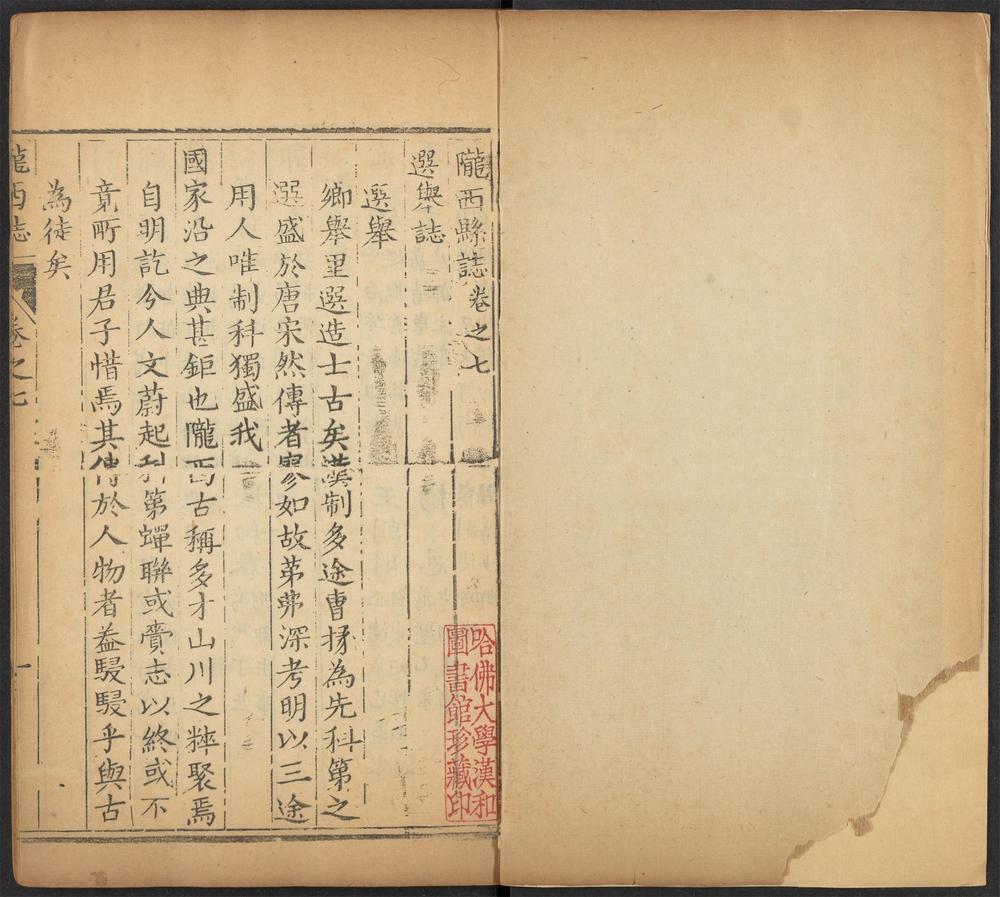 隴西縣誌卷之七
選舉誌
選舉
鄉舉里選造士古矣漢制多途曹掾為先科第之
選盛於唐宋然傳者寥如故苐弗深考明以三途
用人唯制科獨盛我
國家沿之典甚鉅也隴西古稱多才山川之粹聚焉
自明訖今人文蔚起科第蟬聯或賫志以終或不
竟所用君子惜焉其傳於人物者益駸駸乎與古
為徒矣
隴西志
卷之七
一
哈佛大學漢和
圖書館珍藏印